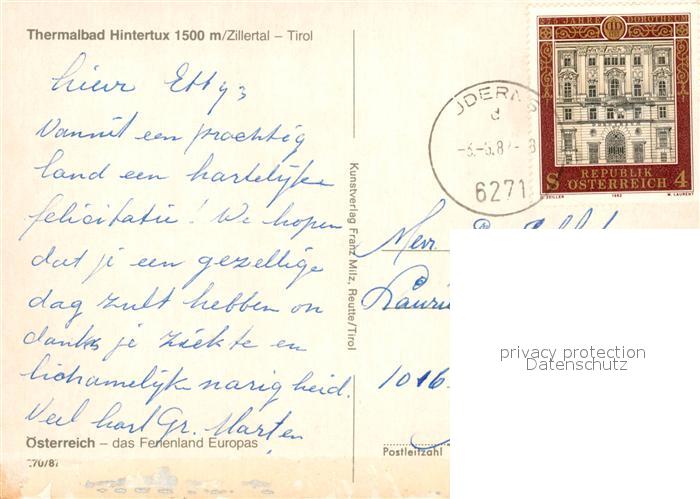 Thermalbad Hintertux 1500 m/Zillertal – Tirol
lieve Etty,
Vanuit een prachtig
land een hartelijke
felicitatie! We hopen
dat je een gezellige
dag zult hebben on
danks je ziekte en
lichamelijke narigheid.
Veel hart Gr. Marten
Österreich – das Ferienland Europas
270/87
Kunstverlag Franz Milz, Reutte/Tirol
UDERNS
d
6271
275 JAHRE DOROTHEUM
REPUBLIK
S ÖSTERREICH 4
O. ZEILER 1982 W. LAURENT
Mevr.
Laurie
1016
Postleitzahl
privacy protection
Datenschutz